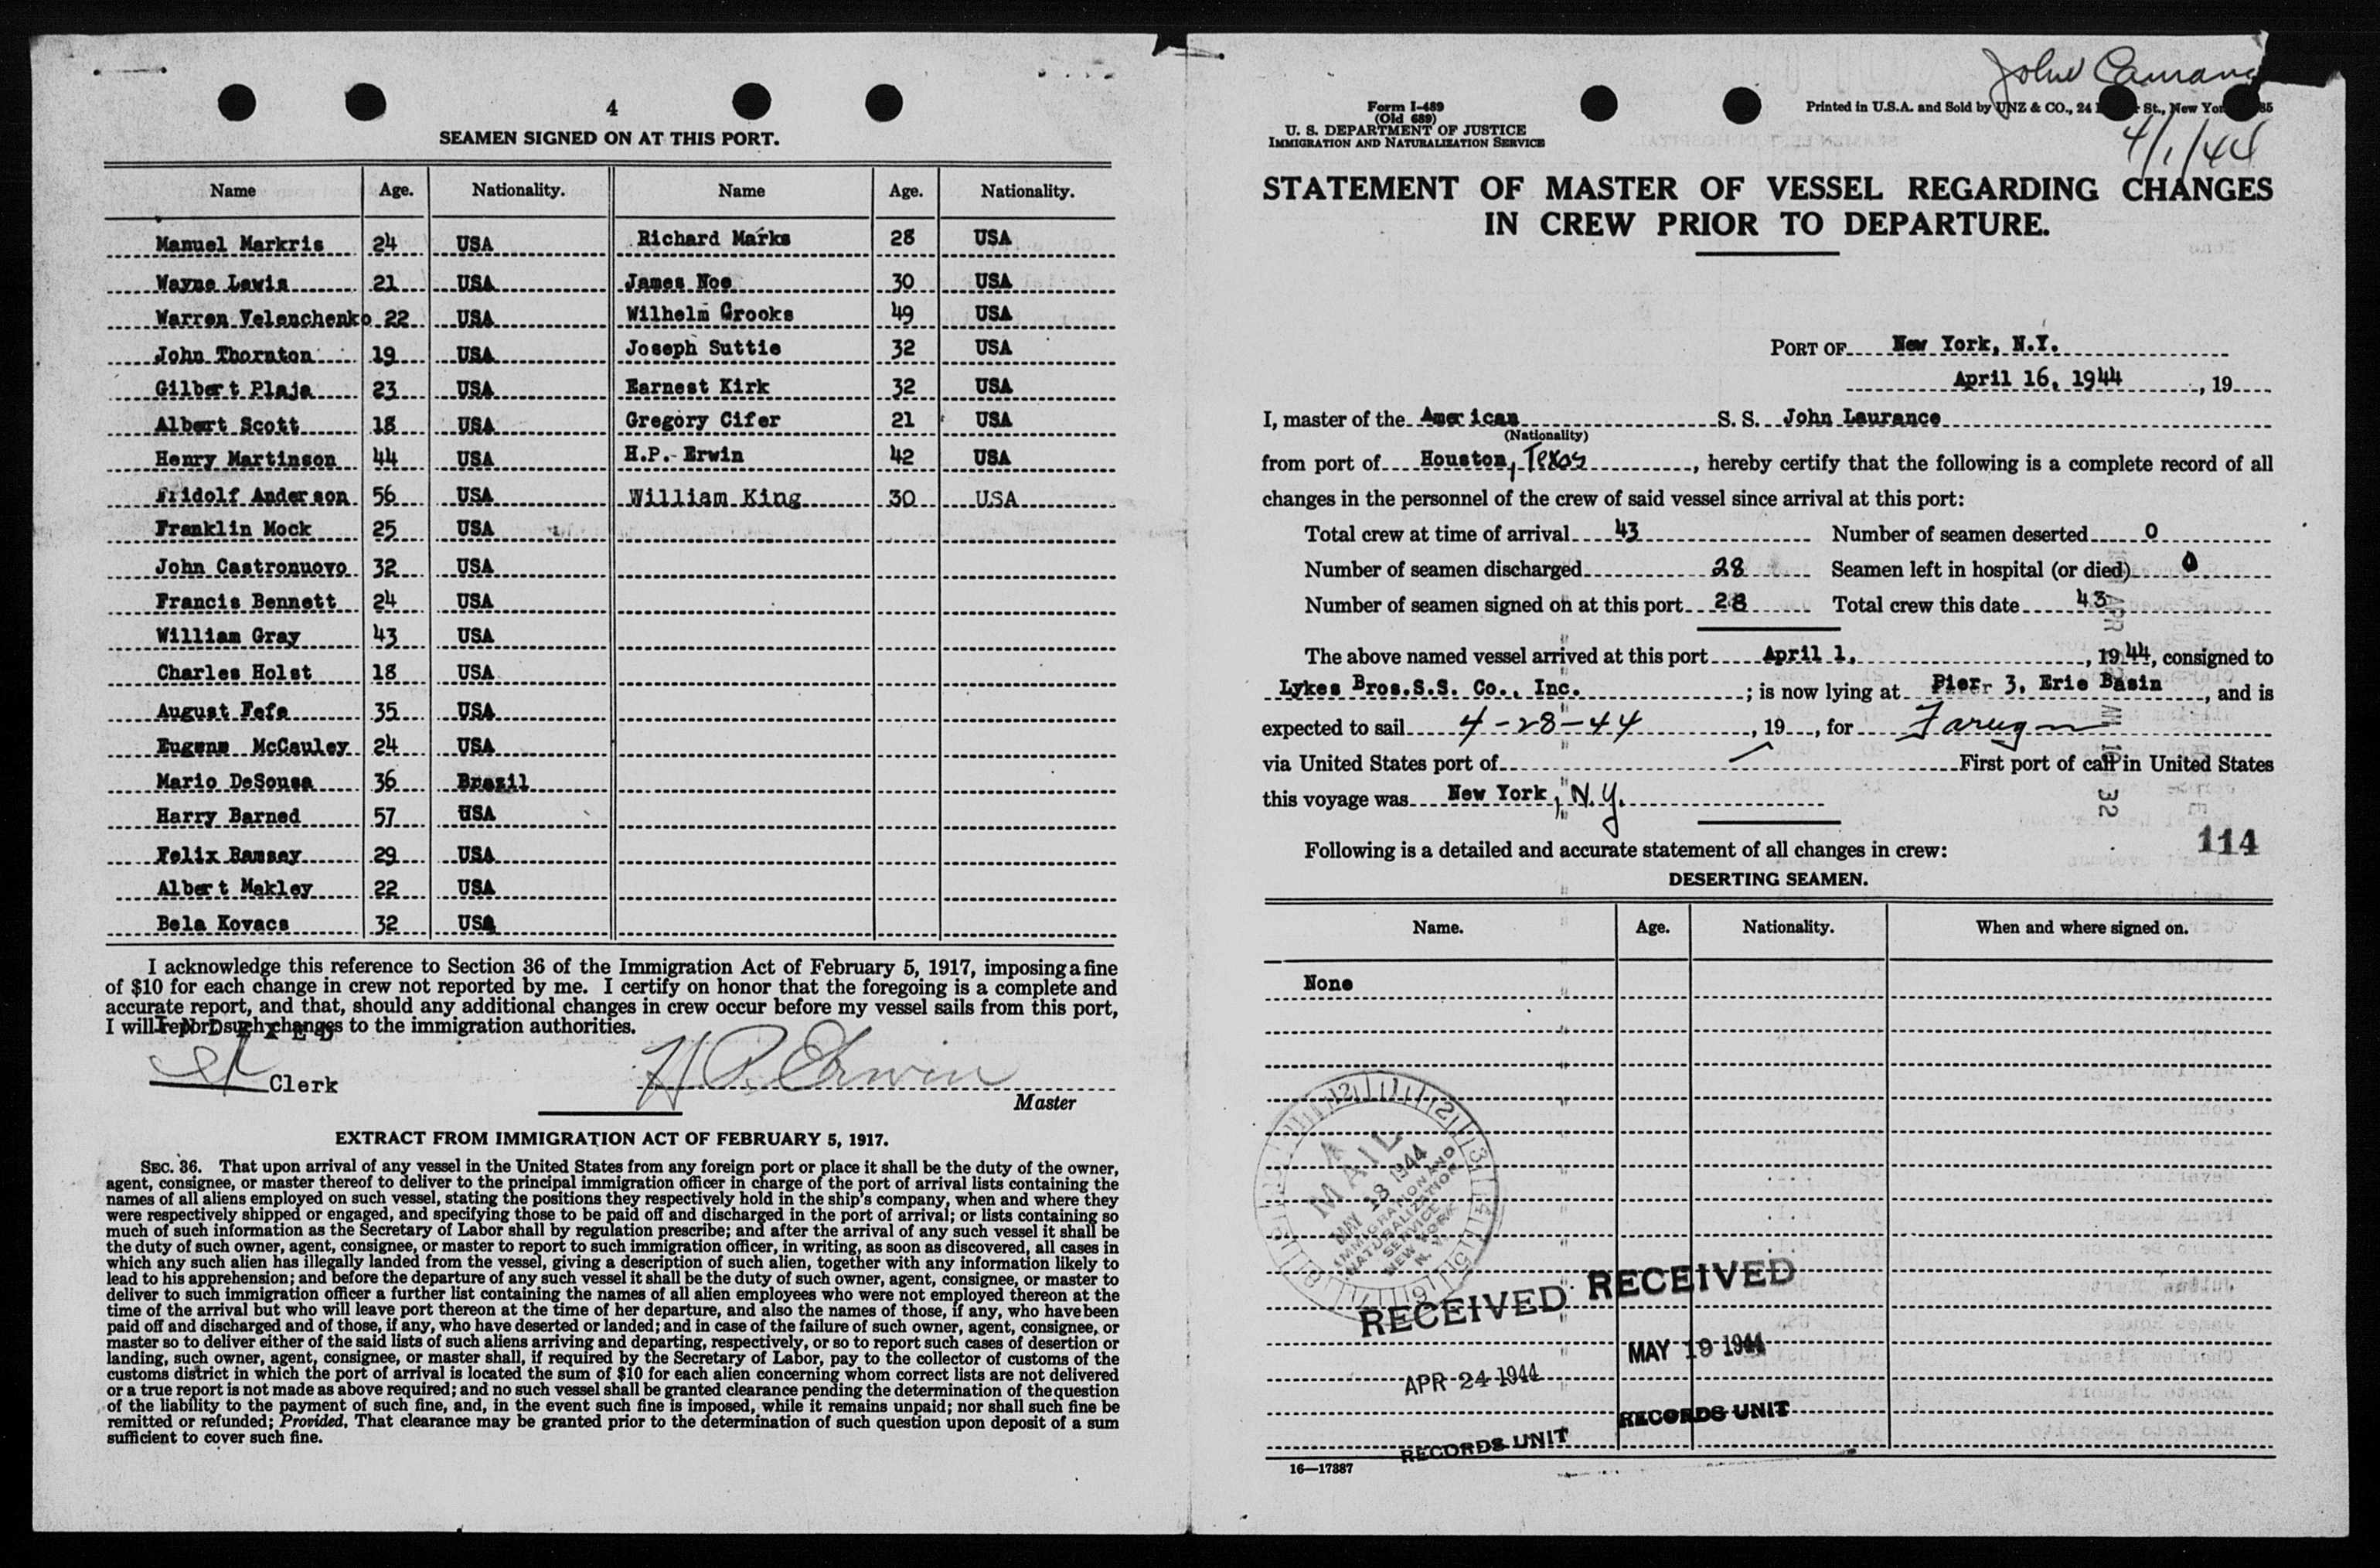 4
SEAMEN SIGNED ON AT THIS PORT.
Name Age. Nationality. Name Age. Nationality.
Manuel Markris 24 USA Richard Marks 28 USA
Wayne Lewis 21 USA James Noe 30 USA
Warren Velenchenko 22 USA Wilhelm Grooks 49 USA
John Thornton 19 USA Joseph Suttie 32 USA
Gilbert Plaja 23 USA Earnest Kirk 32 USA
Albert Scott 18 USA Gregory Cifer 21 USA
Henry Martinson 44 USA H.P. Erwin 42 USA
Fridolf Anderson 56 USA William King 30 USA
Franklin Mock 25 USA
John Castronuovo 32 USA
Francis Bennett 24 USA
William Gray 43 USA
Charles Holst 18 USA
August Fefe 35 USA
Eugene McCauley 24 USA
Mario DeSousa 36 Brazil
Harry Barned 57 USA
Felix Ramsay 29 USA
Albert Makley 22 USA
Bela Kovacs 32 USA
I acknowledge this reference to Section 36 of the Immigration Act of February 5, 1917, imposing a fine
of $10 for each change in crew not reported by me. I certify on honor that the foregoing is a complete and
accurate report, and that, should any additional changes in crew occur before my vessel sails from this port,
I will report such changes to the immigration authorities.
INDEXED
Clerk
H P. Erwin
Master
EXTRACT FROM IMMIGRATION ACT OF FEBRUARY 5, 1917.
SEC. 36. That upon arrival of any vessel in the United States from any foreign port or place it shall be the duty of the owner,
agent, consignee, or master thereof to deliver to the principal immigration officer in charge of the port of arrival lists containing the
names of all aliens employed on such vessel, stating the positions they respectively hold in the ship's company, when and where they
were respectively shipped or engaged, and specifying those to be paid off and discharged in the port of arrival; or lists containing so
much of such information as the Secretary of Labor shall by regulation prescribe; and after the arrival of any such vessel it shall be
the duty of such owner, agent, consignee, or master to report to such immigration officer, in writing, as soon as discovered, all cases in
which any such alien has illegally landed from the vessel, giving a description of such alien, together with any information likely to
lead to his apprehension; and before the departure of any such vessel it shall be the duty of such owner, agent, consignee, or master to
deliver to such immigration officer a further list containing the names of all alien employees who were not employed thereon at the
time of the arrival but who will leave port thereon at the time of her departure, and also the names of those, if any, who have been
paid off and discharged and of those, if any, who have deserted or landed; and in case of the failure of such owner, agent, consignee, or
master so to deliver either of the said lists of such aliens arriving and departing, respectively, or so to report such cases of desertion or
landing, such owner, agent, consignee, or master shall, if required by the Secretary of Labor, pay to the collector of customs of the
customs district in which the port of arrival is located the sum of $10 for each alien concerning whom correct lists are not delivered
or a true report is not made as above required; and no such vessel shall be granted clearance pending the determination of the question
of the liability to the payment of such fine, and, in the event such fine is imposed, while it remains unpaid; nor shall such fine be
remitted or refunded; Provided, That clearance may be granted prior to the determination of such question upon deposit of a sum
sufficient to cover such fine.
John
4/1/44
Form I-489
(Old 689)
U. S. DEPARTMENT OF JUSTICE
IMMIGRATION AND NATURALIZATION SERVICE
Printed in U.S.A. and Sold by UNZ & CO., 24 St., New
STATEMENT OF MASTER OF VESSEL REGARDING CHANGES
IN CREW PRIOR TO DEPARTURE.
PORT OF New York, N.Y.
April 16, 1944, 19
I, master of the American S. S. John Laurance
(Nationality)
from port of Houston, Texas, hereby certify that the following is a complete record of all
changes in the personnel of the crew of said vessel since arrival at this port:
Total crew at time of arrival 43 Number of seamen deserted 0
Number of seamen discharged 28 Seamen left in hospital (or died) 0
Number of seamen signed on at this port 28 Total crew this date 43
The above named vessel arrived at this port April 1, 1944, consigned to
Lykes Bros.S.S. Co., Inc.; is now lying at Pier 3, Erie Basin, and is
expected to sail 4-28-44, 19, for
via United States port of First port of call in United States
this voyage was New York, N.Y.
APR AM 32
114
Following is a detailed and accurate statement of all changes in crew:
DESERTING SEAMEN.
Name. Age. Nationality. When and where signed on.
None
MAIL
MAY 18 1944
IMMIGRATION AND
NATURALIZATION
SERVICE
NEW YORK
N. Y.
RECEIVED RECEIVED
APR 24 1944 MAY 19 1944
RECORDS UNIT RECORDS UNIT
16—17387